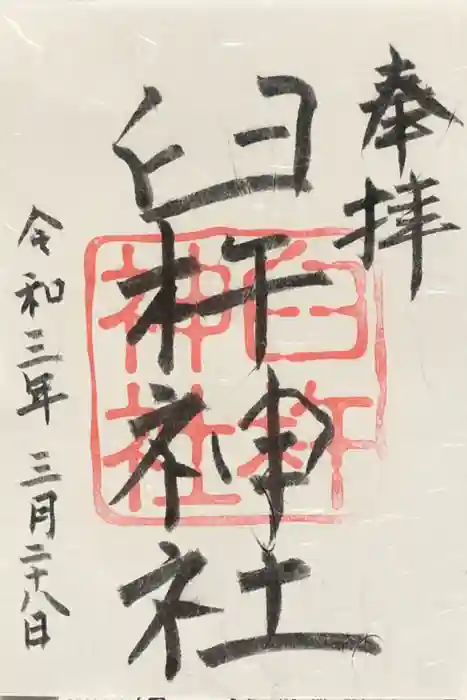 奉拝
臼杵神社
臼杵
神社
令和三年 三月二十八日